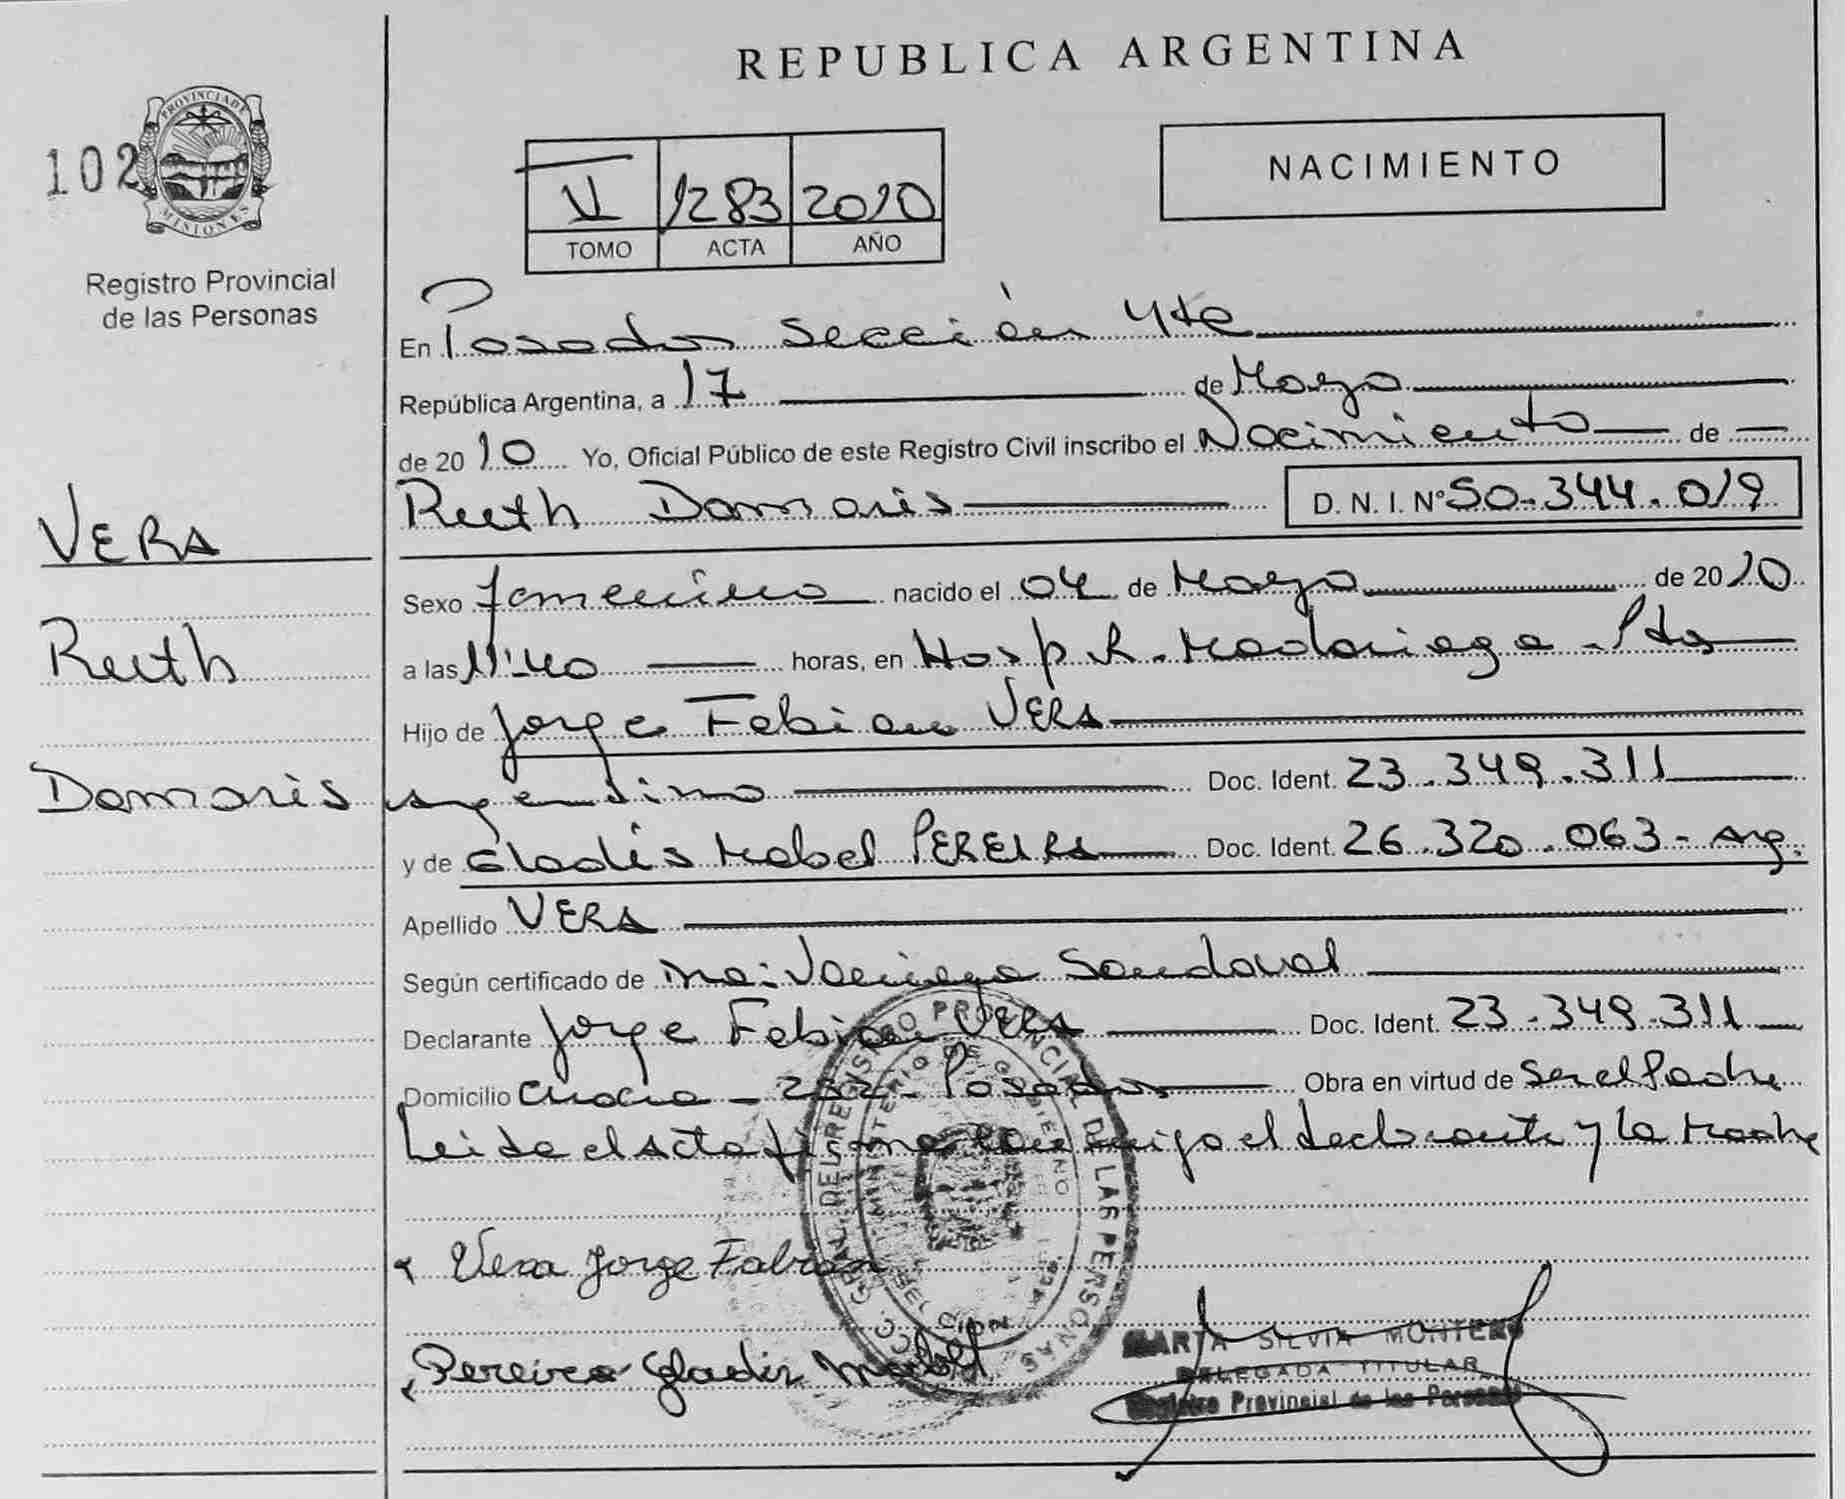 REPUBLICA ARGENTINA
PROVINCIA DE
MISIONES
102
Registro Provincial
de las Personas
V 1283 2010
TOMO ACTA AÑO
NACIMIENTO
En Posadas Sección 4ta
República Argentina, a 17 de Mayo
de 2010 Yo, Oficial Público de este Registro Civil inscribo el Nacimiento de
Ruth Damaris D. N. I. Nº 50.344.019
VERA
Ruth
Damaris
Sexo femenino nacido el 04 de Mayo de 2010
a las 11:40 horas, en Hosp. R. Madariaga - Pdas
Hijo de Jorge Fabian VERA
argentino Doc. Ident. 23.349.311
y de Gladis Mabel PEREIRA Doc. Ident. 26.320.063 - Arg.
Apellido VERA
Según certificado de Sandoval
Declarante Jorge Fabian VERA Doc. Ident. 23.349.311
Domicilio Chacra - 252 - Posadas Obra en virtud de Ser el Padre
Leida el Acta firma conmigo el declarante y la Madre
Vera Jorge Fabian
Pereira Gladis Mabel
DEL REGISTRO PROVINCIAL DE LAS PERSONAS
MINISTERIO DE GOBIERNO
MARTA SILVIA MONTERO
DELEGADA TITULAR
Registro Provincial de las Personas